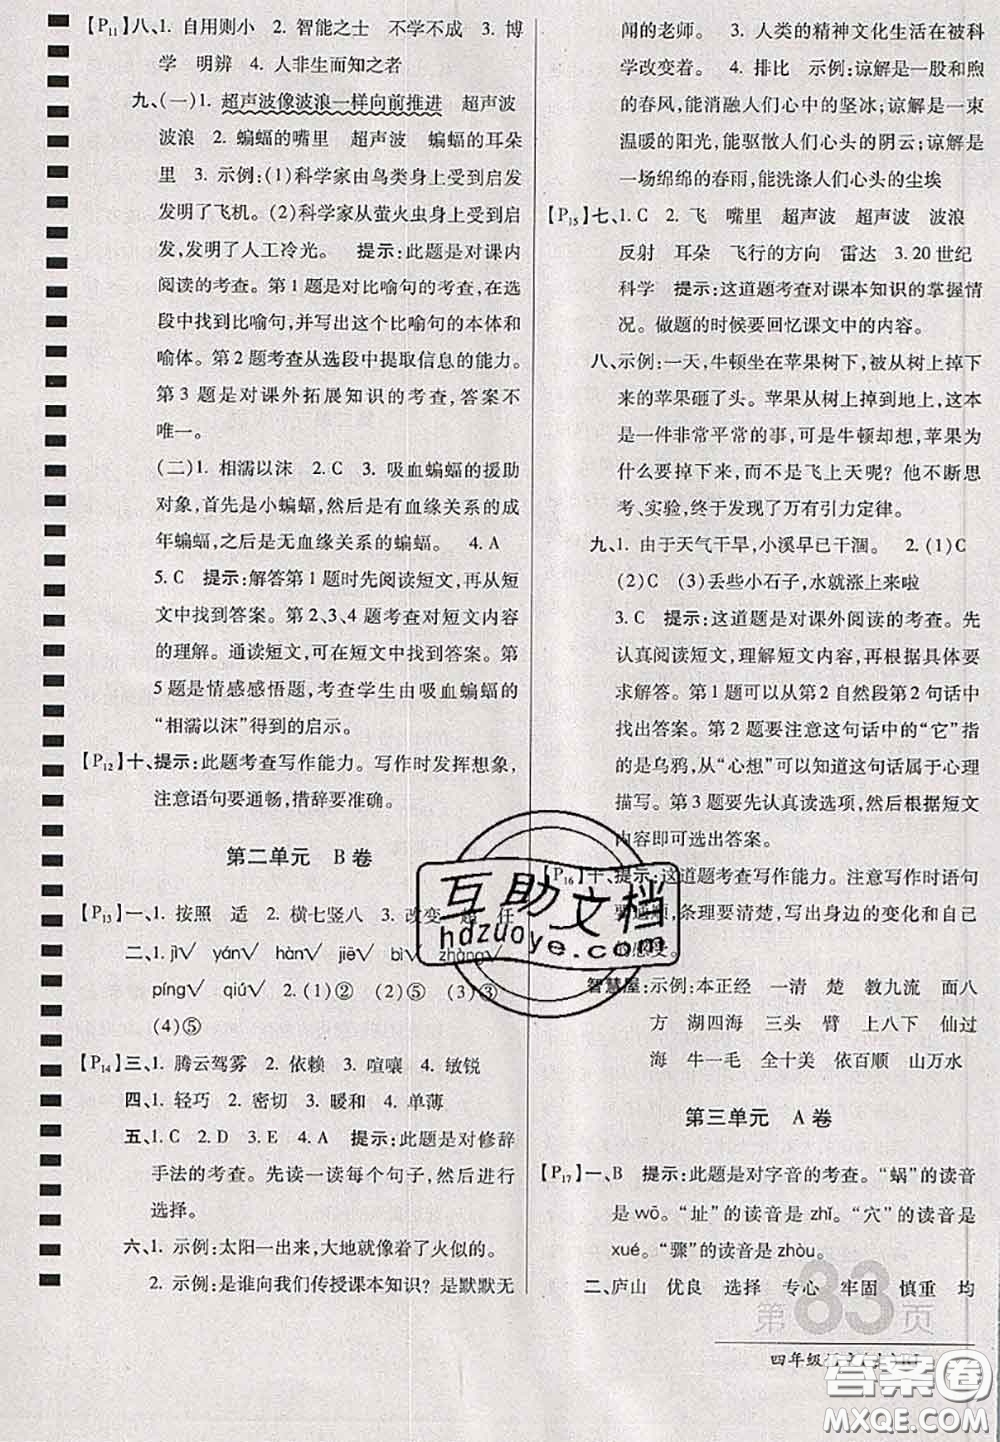 【P11】八、1. 自用则小　2. 智能之士　不学不成　3. 博
学　明辨　4. 人非生而知之者
九、(一)1. 超声波像波浪一样向前推进　超声波
波浪　2. 蝙蝠的嘴里　超声波　蝙蝠的耳朵
里　3. 示例:(1)科学家由鸟类身上受到启发
发明了飞机。(2)科学家从萤火虫身上受到启
发,发明了人工冷光。　提示:此题是对课内
阅读的考查。第 1 题是对比喻句的考查,在选
段中找到比喻句,并写出这个比喻句的本体和
喻体。第 2 题考查从选段中提取信息的能力。
第 3 题是对课外拓展知识的考查,答案不
唯一。
(二)1. 相濡以沫　2. C　3. 吸血蝙蝠的援助
对象,首先是小蝙蝠,然后是有血缘关系的成
年蝙蝠,之后是无血缘关系的蝙蝠。　4. A
5. C　提示:解答第 1 题时先阅读短文,再从短
文中找到答案。第 2、3、4 题考查对短文内容
的理解。通读短文,可在短文中找到答案。第
5 题是情感感悟题,考查学生由吸血蝙蝠的
“相濡以沫”得到的启示。
【P12】十、提示:此题考查写作能力。写作时发挥想象,
注意语句要通畅,措辞要准确。
第二单元　B 卷
【P13】一、1. 按照　适　2. 横七竖八　3. 改变　超　任
二、1. jì√　yán√　hàn√　jī√　bì√　zhàng√
píng√　qiú√　2. (1)②　(2)②　(3)③
(4)⑤
【P14】三、1. 腾云驾雾　2. 依赖　3. 喧嚷　4. 敏锐
四、1. 轻巧　2. 密切　3. 暖和　4. 单薄
五、1. C　2. D　3. E　4. A　提示:此题是对修辞
手法的考查。先读一读每个句子,然后进行
选择。
六、1. 示例:太阳一出来,大地就像着了火似的。
2. 示例:是谁向我们传授课本知识? 是默默无
闻的老师。　3. 人类的精神文化生活在被科
学改变着。　4. 排比　示例:谅解是一股和煦
的春风,能消融人们心中的坚冰;谅解是一束
温暖的阳光,能驱散人们心头的阴云;谅解是
一场绵绵的春雨,能洗涤人们心头的尘埃
【P15】七、1. C　2. 飞　嘴里　超声波　超声波　波浪
反射　耳朵　飞行的方向　雷达　3. 20 世纪
科学　提示:这道题考查对课本知识的掌握情
况。做题的时候要回忆课文中的内容。
八、示例:一天,牛顿坐在苹果树下,被从树上掉下
来的苹果砸了头。苹果从树上掉到地上,这本
是一件非常平常的事,可是牛顿却想,苹果为
什么要掉下来,而不是飞上天呢? 他不断思
考、实验,终于发现了万有引力定律。
九、1. 由于天气干旱,小溪早已干涸。　2. (1)C
(2)C　(3)丢些小石子,水就漫上来啦
3. C　提示:这道题是对课外阅读的考查。先
认真阅读短文,理解短文内容,再根据具体要
求解答。第 1 题可以从第 2 自然段第 2 句话中
找出答案。第 2 题要注意这句话中的“它”指
的是乌鸦,从“心想”可以知道这句话属于心理
描写。第 3 题要先认真读选项,然后根据短文
内容即可选出答案。
【P16】十、提示:这道题考查写作能力。注意写作时语句
要通顺,条理要清楚,写出身边的变化和自己
的感受。
智慧屋:示例:本正经　一清　楚　教九流　面八
方　湖四海　三头　臂　上八下　仙过
海　牛一毛　全十美　依百顺　山万水
第三单元　A 卷
【P17】一、B　提示:此题是对字音的考查。“蜗”的读音
是 wō。“址”的读音是 zhǐ。“穴”的读音是
xué。“骤”的读音是 zhòu。
二、庐山　优良　选择　专心　牢固　慎重　均
第83页
四年级
互助文档
hdzuoye.com
答案圈
MXQE.COM